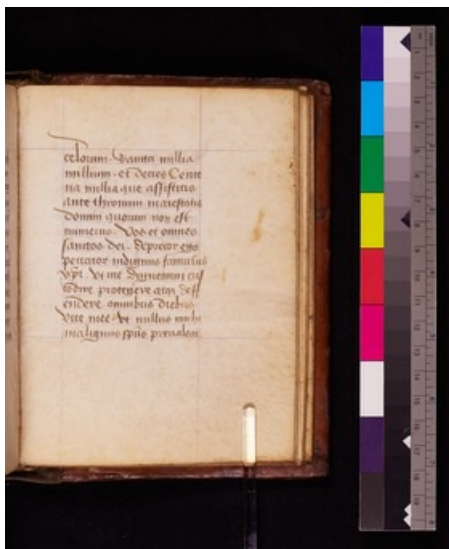 celorum. Vaucia millia
millium. et decies Cente
na millia que assistitis
ante thronum maiestatis
domini quorum non est
numerus. Vos et omnes
sanctos dei. deprecor ego
peccator indignus famulus
Vt me dignemini cus
todire protegere atque def
endere omnibus diebus
vite mee. Vt nullus michi
malignus spūs preualeat